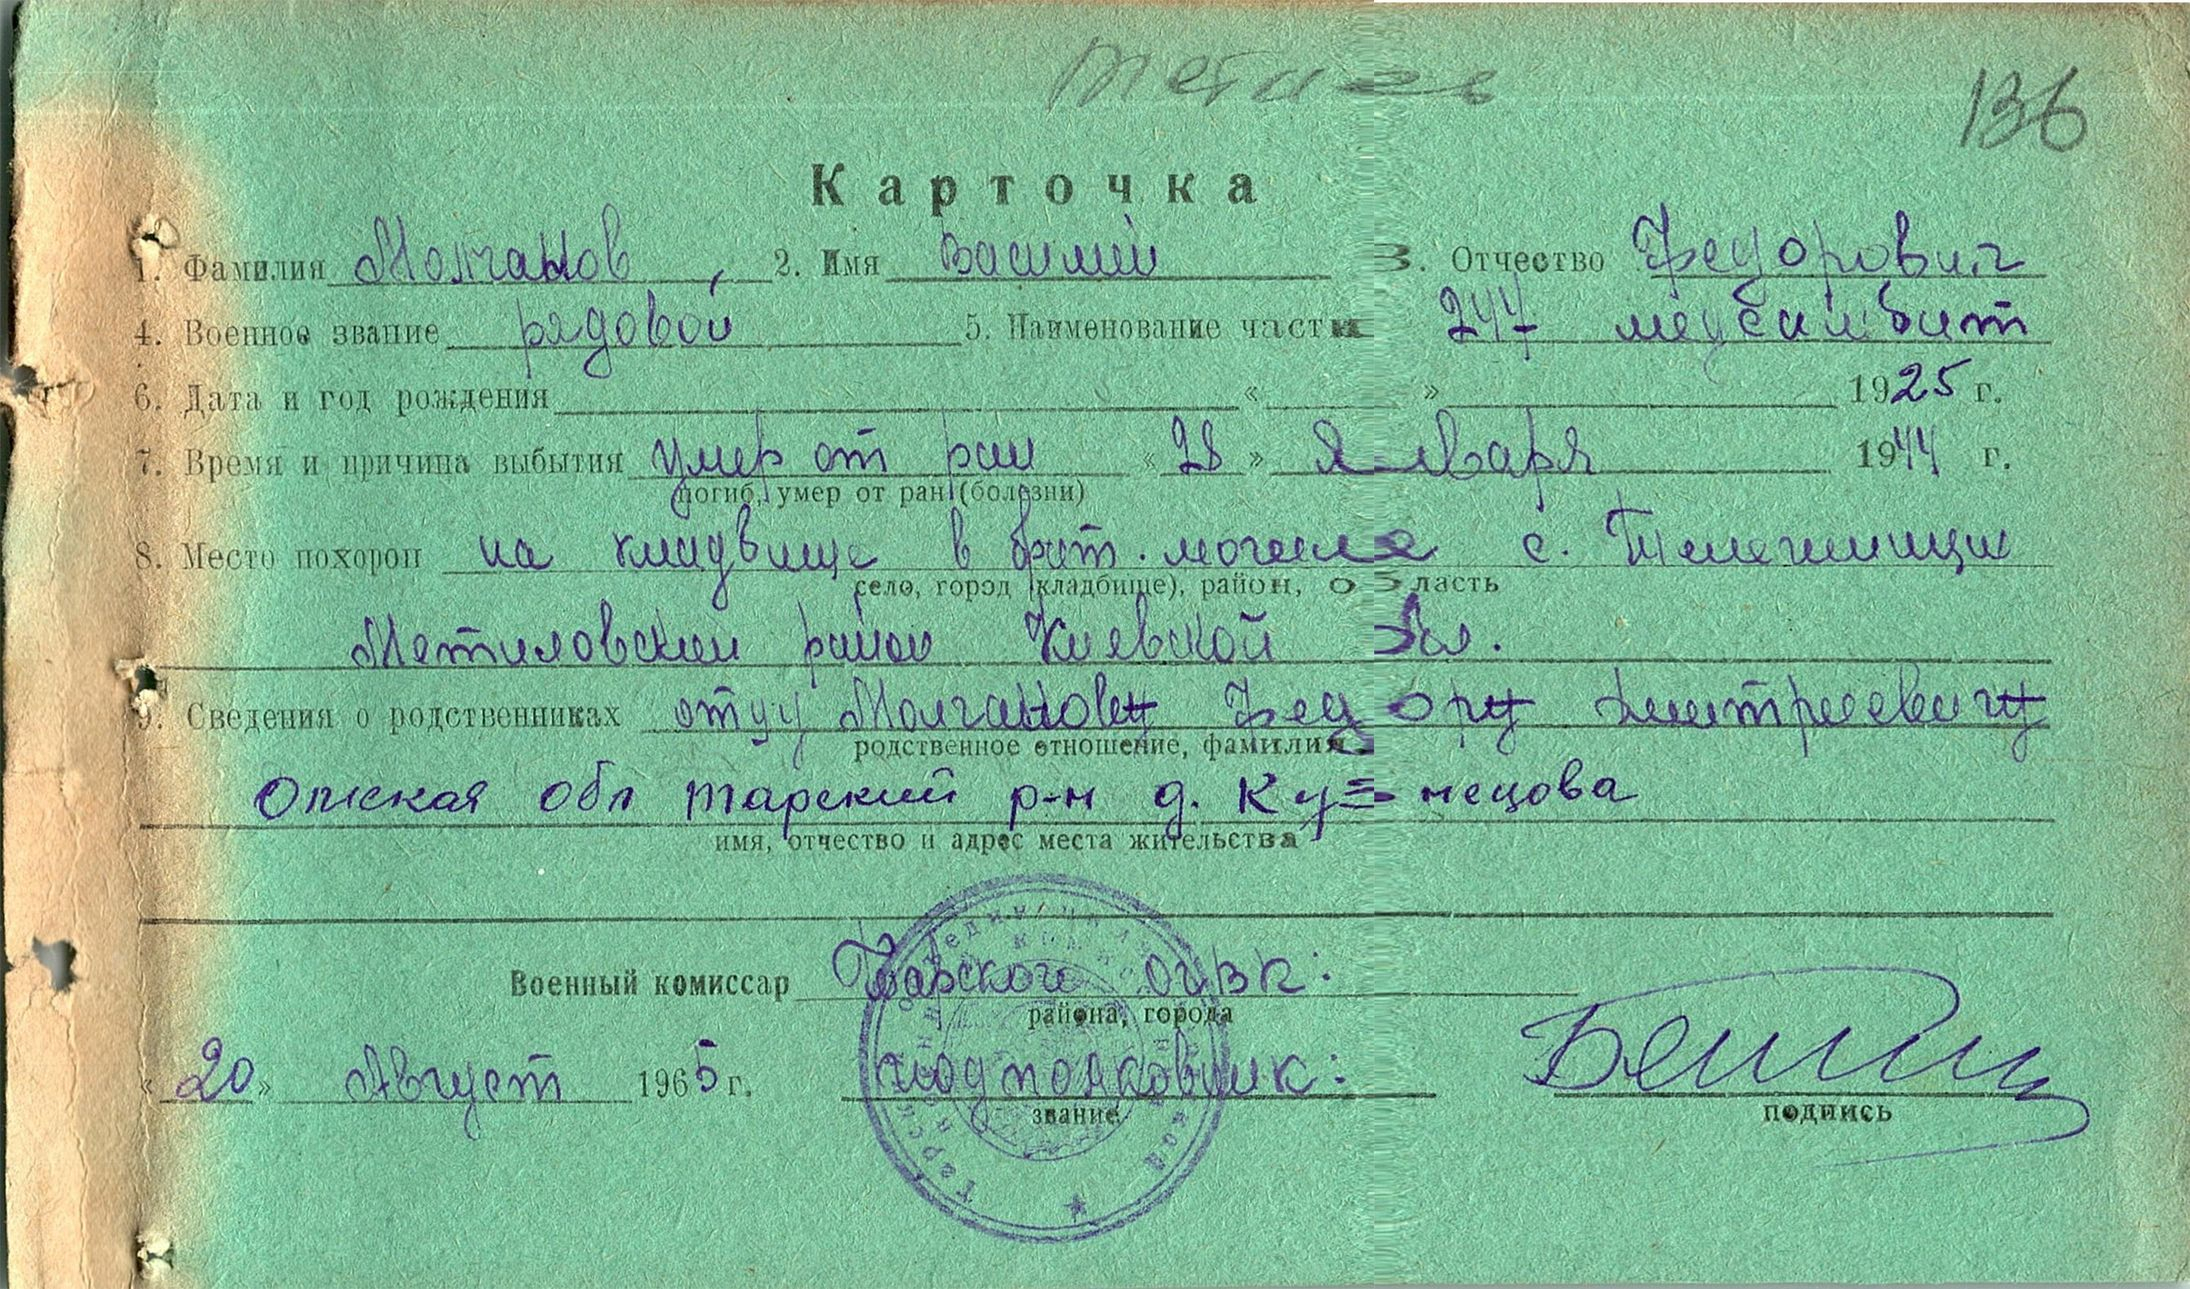 136
Карточка
1. Фамилия Молчанов, 2. Имя Василий 3. Отчество Федорович
4. Военное звание рядовой 5. Наименование части 247 медсанбат
6. Дата и год рождения « » 1925 г.
7. Время и причина выбытия умер от ран «28» Января 1944 г.
погиб, умер от ран (болезни)
8. Место похорон на кладвище в брат. могиле с.
село, город (кладбище), район, область
район Киевской обл.
9. Сведения о родственниках отцу Молчанову Федору Дмитриевичу
родственное отношение, фамилия
Омская обл Тарский р-н д. Кузнецова
имя, отчество и адрес места жительства
Военный комиссар Тарского ОГВК:
района, города
«20» Август 1965 г. подполковник:
звание подпись